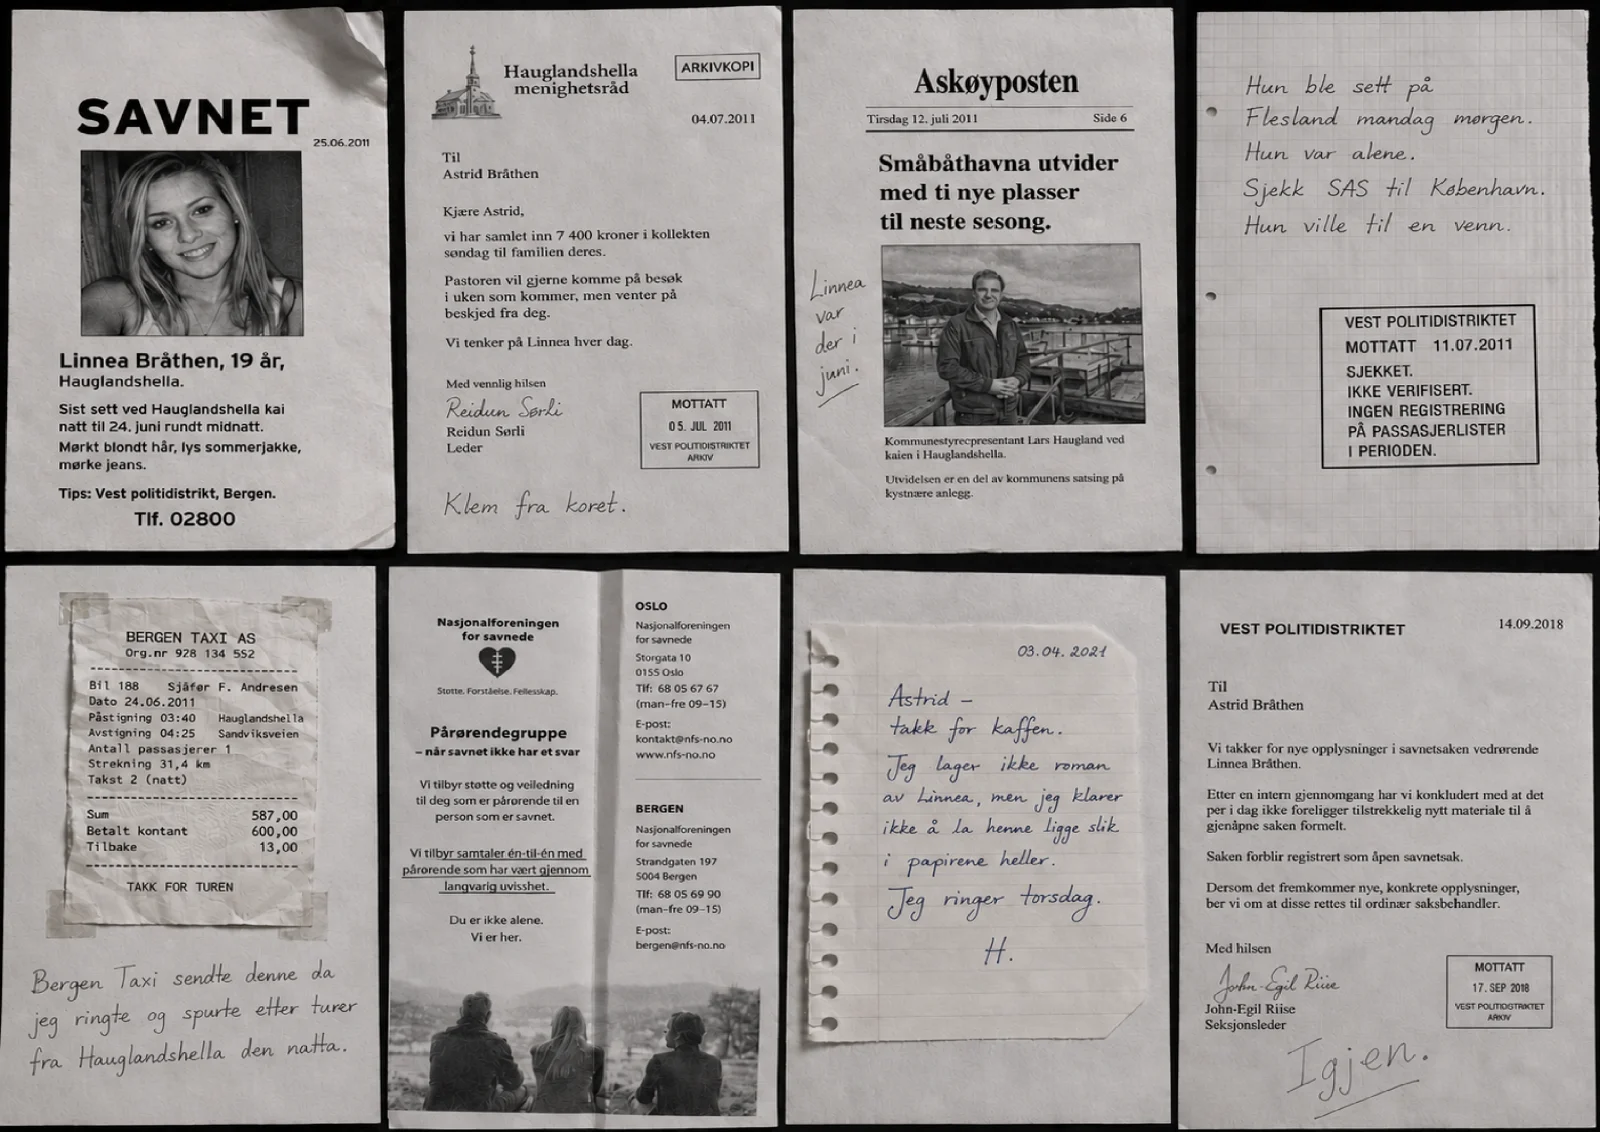 SAVNET
25.06.2011
Linnea Bråthen, 19 år,
Hauglandshella.
Sist sett ved Hauglandshella kai
natt til 24. juni rundt midnatt.
Mørkt blondt hår, lys sommerjakke,
mørke jeans.
Tips: Vest politidistrikt, Bergen.
Tlf. 02800
Hauglandshella
menighetsråd
ARKIVKOPI
04.07.2011
Til
Astrid Bråthen
Kjære Astrid,
vi har samlet inn 7 400 kroner i kollekten
søndag til familien deres.
Pastoren vil gjerne komme på besøk
i uken som kommer, men venter på
beskjed fra deg.
Vi tenker på Linnea hver dag.
Med vennlig hilsen
Reidun Sørli
Reidun Sørli
Leder
MOTTATT
05. JUL 2011
VEST POLITIDISTRIKTET
ARKIV
Klem fra koret.
Askøyposten
Tirsdag 12. juli 2011 Side 6
Småbåthavna utvider
med ti nye plasser
til neste sesong.
Linnea
var
der i
juni.
Kommunestyrecpresentant Lars Haugland ved
kaien i Hauglandshella.
Utvidelsen er en del av kommunens satsing på
kystnære anlegg.
Hun ble sett på
Flesland mandag mørgen.
Hun var alene.
Sjekk SAS til København.
Hun ville til en venn.
VEST POLITIDISTRIKTET
MOTTATT 11.07.2011
SJEKKET.
IKKE VERIFISERT.
INGEN REGISTRERING
PÅ PASSASJERLISTER
I PERIODEN.
BERGEN TAXI AS
Org.nr 928 134 552
Bil 188 Sjåfør F. Andresen
Dato 24.06.2011
Påstigning 03:40 Hauglandshella
Avstigning 04:25 Sandviksveien
Antall passasjerer 1
Strekning 31,4 km
Takst 2 (natt)
Sum 587,00
Betalt kontant 600,00
Tilbake 13,00
TAKK FOR TUREN
Bergen Taxi sendte denne da
jeg ringte og spurte etter turer
fra Hauglandshella den natta.
Nasjonalforeningen
for savnede
Støtte. Forståelse. Fellesskap.
Pårørendegruppe
– når savnet ikke har et svar
Vi tilbyr støtte og veiledning
til deg som er pårørende til en
person som er savnet.
Vi tilbyr samtaler én-til-én med
pårørende som har vært gjennom
langvarig uvisshet.
Du er ikke alene.
Vi er her.
OSLO
Nasjonalforeningen
for savnede
Storgata 10
0155 Oslo
Tlf: 68 05 67 67
(man–fre 09–15)
E-post:
kontakt@nfs-no.no
www.nfs-no.no
BERGEN
Nasjonalforeningen
for savnede
Strandgaten 197
5004 Bergen
Tlf: 68 05 69 90
(man–fre 09–15)
E-post:
bergen@nfs-no.no
03.04.2021
Astrid –
takk for kaffen.
Jeg lager ikke roman
av Linnea, men jeg klarer
ikke å la henne ligge slik
i papirene heller.
Jeg ringer torsdag.
H.
VEST POLITIDISTRIKTET
14.09.2018
Til
Astrid Bråthen
Vi takker for nye opplysninger i savnetsaken vedrørende
Linnea Bråthen.
Etter en intern gjennomgang har vi konkludert med at det
per i dag ikke foreligger tilstrekkelig nytt materiale til å
gjenåpne saken formelt.
Saken forblir registrert som åpen savnetsak.
Dersom det fremkommer nye, konkrete opplysninger,
ber vi om at disse rettes til ordinær saksbehandler.
Med hilsen
John-Egil Riise
John-Egil Riise
Seksjonsleder
MOTTATT
17. SEP 2018
VEST POLITIDISTRIKTET
ARKIV
Igjen.